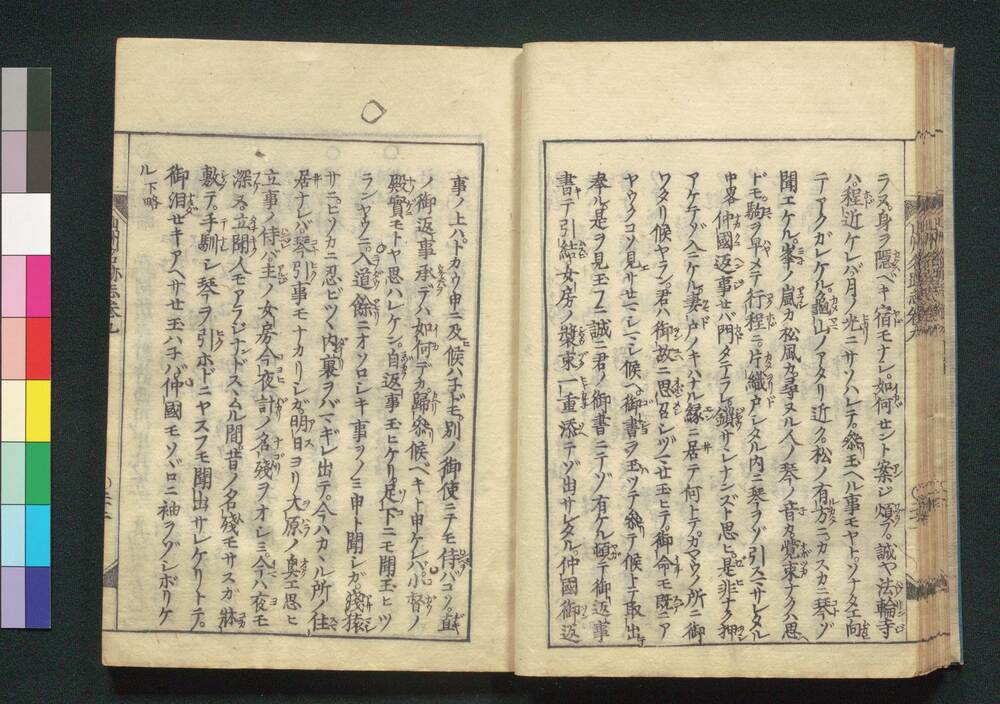 ラヌ身ヲ隠ベキ宿モナシ如何セント案ジ煩フ誠ヤ法輪寺
ハ程近ケレバ月ノ光ニサソハレテ參玉ヘル事モヤトソナタエ向
テアクガレケル龜山ノアタリ近ク松ノ有方ニカスカニ琴ゾ
聞エケル峯ノ嵐カ松風カ尋ヌル人ノ琴ノ音カ覚束ナクハ思ヘ
ドモ駒ヲ早メテ行程ニ片織戸シタル内ニ琴ヲゾ引スマサレタル
中畧 仲國返事セバ門タテラレ鎖サレナンズト思ヒ是非ナク押
アケテゾ入ニケル妻戸ノキハナル縁ニ居テ何トテカマウノ所ニ御
ワタリ候ヤラン君ハ御故ニ思召シヅマセ玉ヒテ御命モ既ニア
ヤウクコソ見サセマシマシ候ヘ御書ヲ玉ツテ參テ候トテ取出
奉ル是ヲ見玉フニ誠ニ君ノ御書ニテゾ有ケル頓テ御返事
書テ引結女房ノ裝束一重添テゾ出サレタル仲國御返
事ノ上ハトカウ申ニ及候ハネドモ別ノ御使ニテモ侍ハヾコソ直
ノ御返事承デハ如何デカ歸參候ベキト申ケレバ小督ノ
殿實モトヤ思ハレケン自返事玉ヒケリ足下ニモ聞玉ヒツ
ランヤウニ入道餘ニオソロシキ事ヲノミ申ト聞シガ淺猿
サニヒソカニ忍ビツヽ内裏ヲバマギレ出テ今ハカヽル所ノ住
居ナレバ琴引事モナカリシガ明日ヨリ大原ノ奥エ思ヒ
立事ノ侍バ主ノ女房今夜計ノ名殘ヲオシミ今ハ夜モ
深ヌ立聞人モアラジナドスヽムル間昔ノ名殘モサスガ牀
敷テ手馴シ琴ヲ引ホドニヤスフモ聞出サレケリトテ
御泪セキアヘサセ玉ハネバ仲國モソヾロニ袖ヲゾシボリケ
ル下略